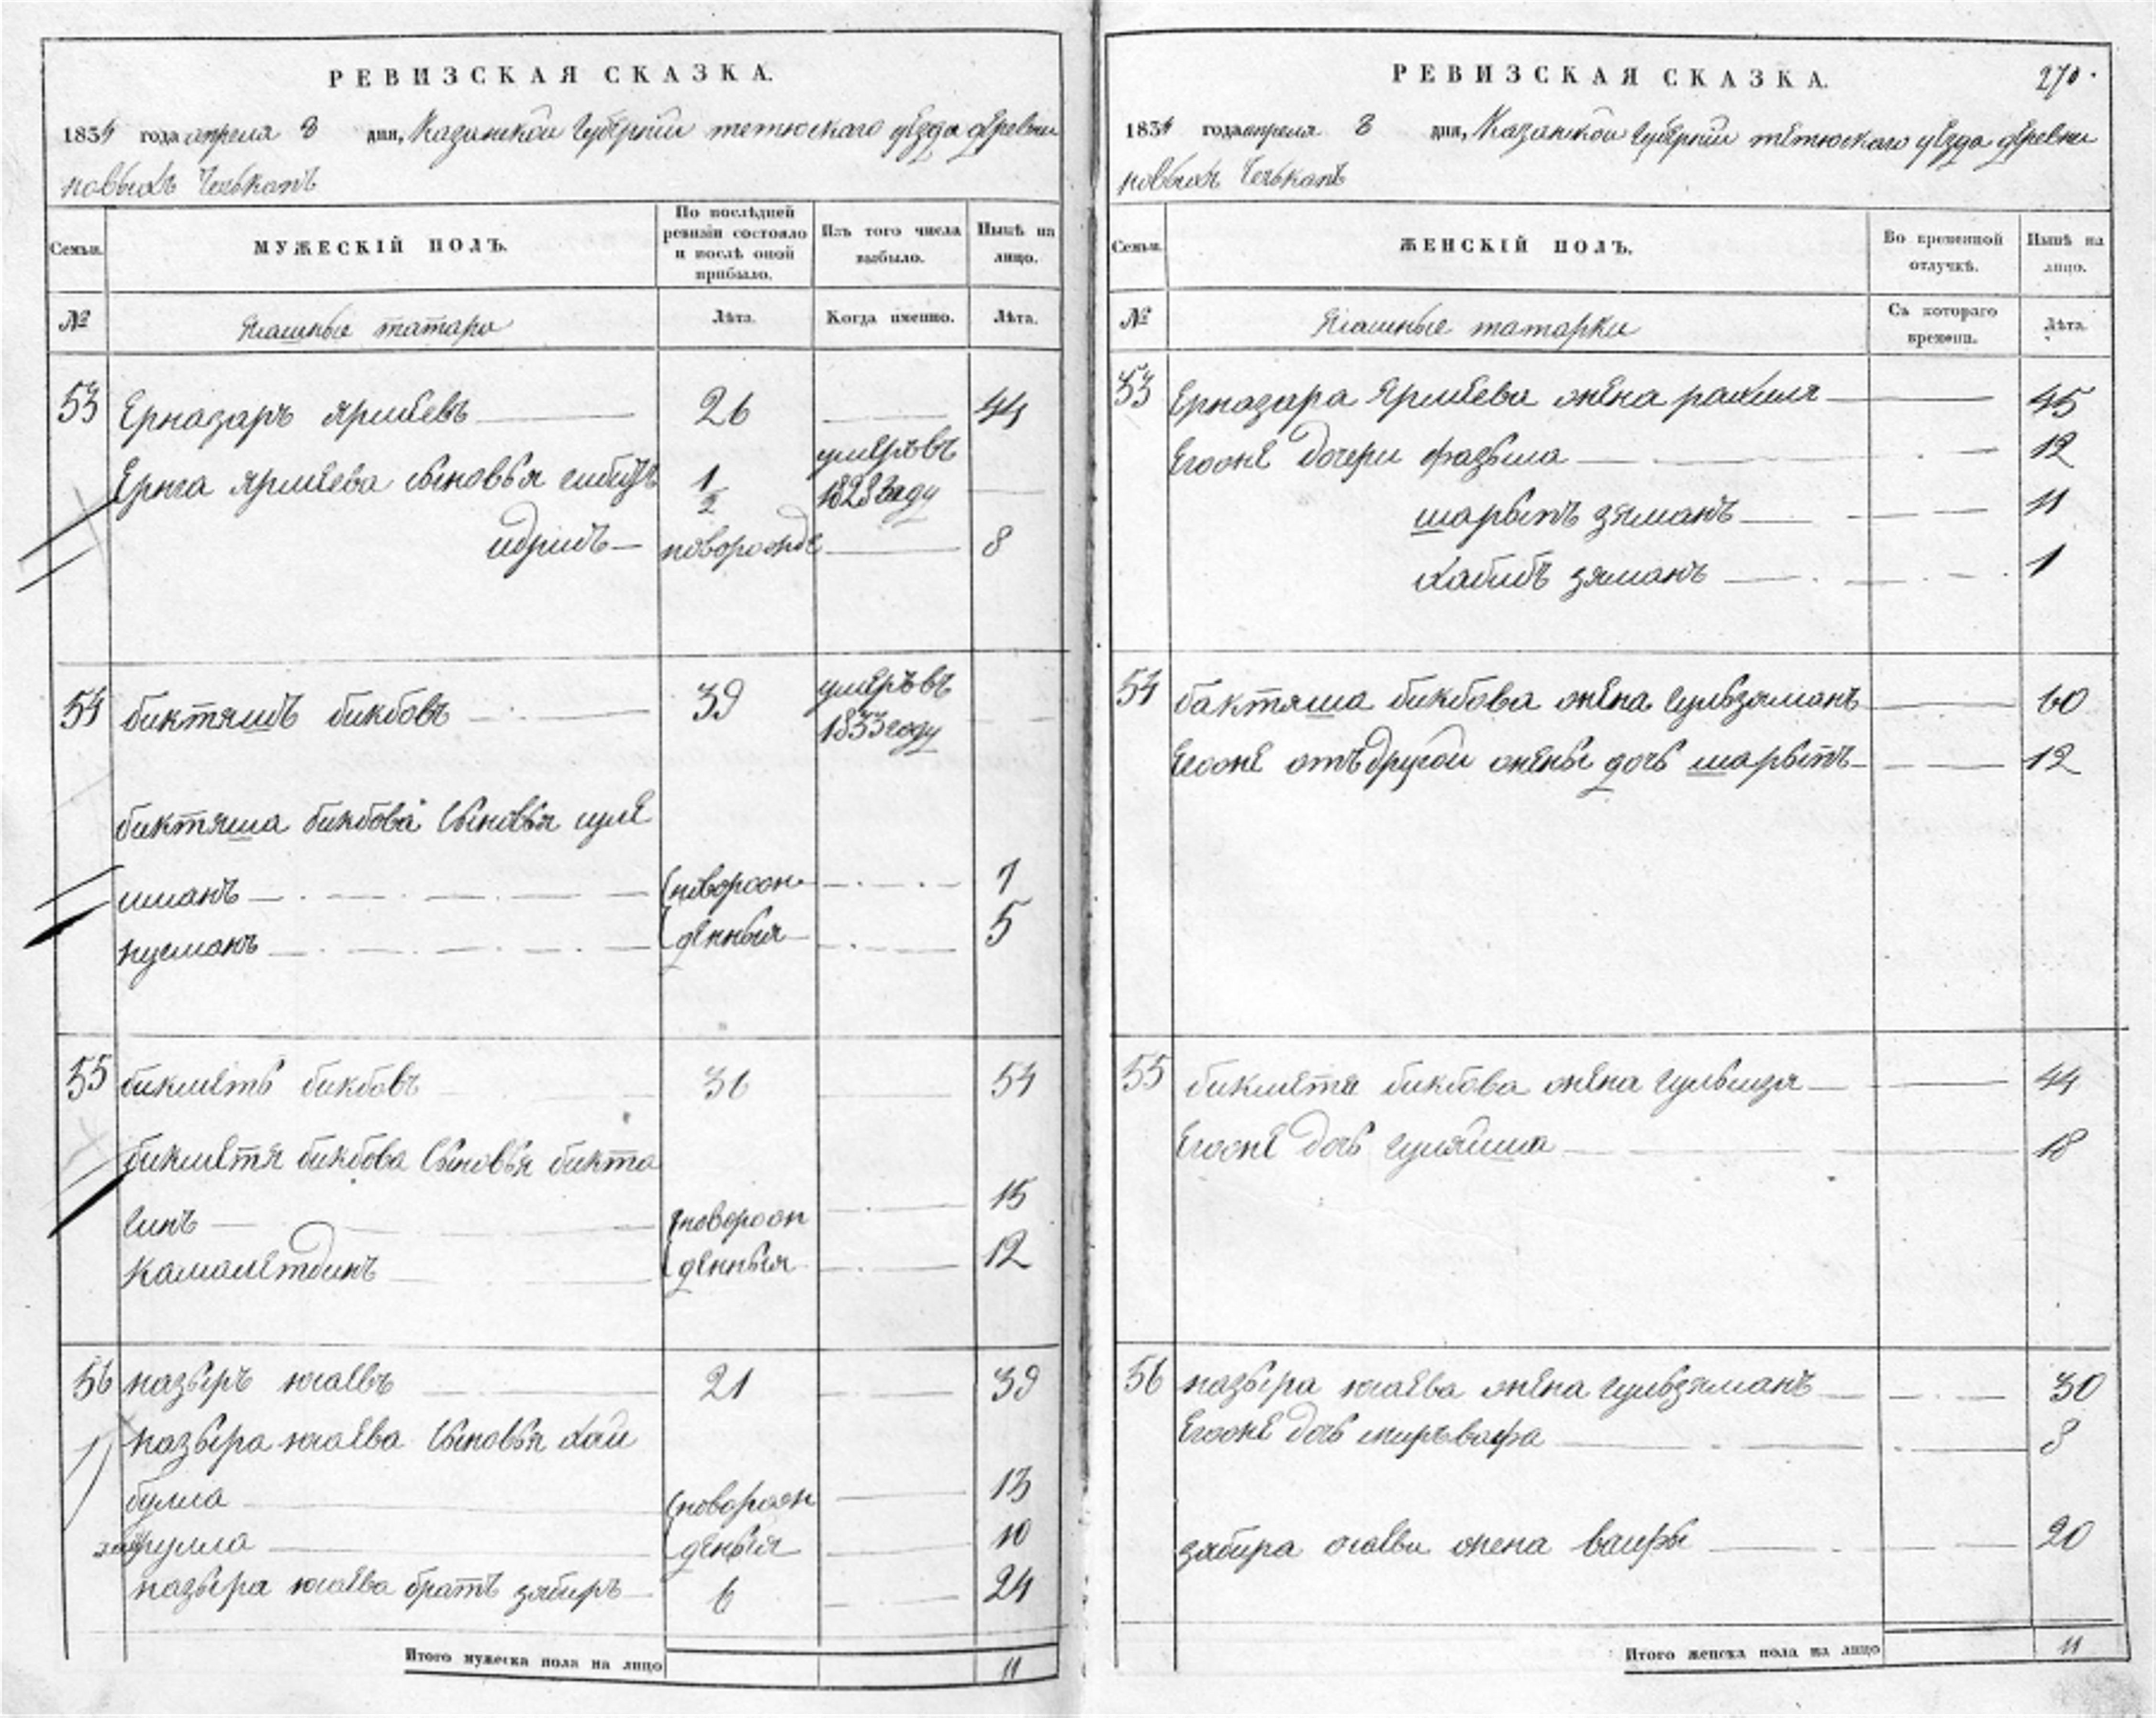 РЕВИЗСКАЯ СКАЗКА.
1834 года апреля 8 дня, Казанской Губернии тетюскаго уезда деревни
новыхъ Чечкапъ
Семьи.
МУЖЕСКІЙ ПОЛЪ.
По послѣдней ревизіи состояло и послѣ оной прибыло.
Изъ того числа выбыло.
Нынѣ на лицо.
№
Ясашные татара
Лѣта.
Когда именно.
Лѣта.
53 Ерназаръ ярмеевъ 26 44
ярмеева сыновья 1/2 умеръ въ 1828 году
идрисъ новорожде 8
54 биктяшъ бикбовъ 39 умеръ въ 1833 году
биктяша бикбова сыновья суле
иманъ новорож 7
нугманъ денныя 5
55 бикметь бикбовъ 36 54
бикметя бикбова сыновья бикта
гинъ новорож 15
камалетдинъ денныя 12
56 назыръ юсаевъ 21 39
назыра юсаева сыновья хай
булла новорож 13
рулла денныя 10
назыра юсаева братъ забиръ 6 24
Итого мужеска пола на лицо 11
РЕВИЗСКАЯ СКАЗКА. 270.
1834 года апреля 8 дня, Казанской Губернии тетюскаго уезда деревни
новыхъ Чечкапъ
Семьи.
ЖЕНСКІЙ ПОЛЪ.
Во временной отлучкѣ.
Нынѣ на лицо.
№
Ясашные татарки
Съ котораго времени.
Лѣта.
53 Ерназара Ярмеева жена рахиля 45
Егоже дочери фазыла 12
шарыпъ зяманъ 11
хабибъ зяманъ 1
54 бактяша бикбова жена гульзяманъ 60
Егоже отъ другой жены дочь шарыпъ 12
55 бикметя бикбова жена 44
Егоже дочь гуляйша 18
56 назыра юсаева жена гульзяманъ 30
Егоже дочь миръвафа 8
забира жена 20
Итого женска пола на лицо 11